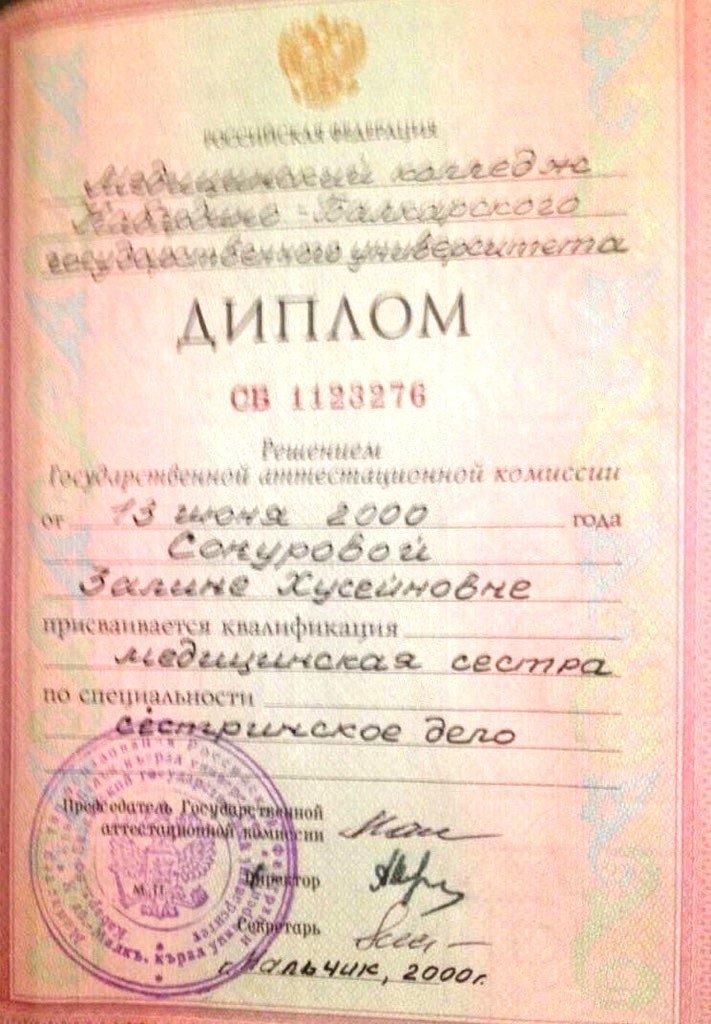 РОССИЙСКАЯ ФЕДЕРАЦИЯ
Медицинский колледж
Кабардино-Балкарского
государственного университета
ДИПЛОМ
СБ 1123276
Решением
Государственной аттестационной комиссии
от 13 июня 2000 года
Сокуровой
Залине Хусейновне
присваивается квалификация
медицинская сестра
по специальности
сестринское дело
Председатель Государственной
аттестационной комиссии
М.П.
Директор
Секретарь
г. Нальчик, 2000г.